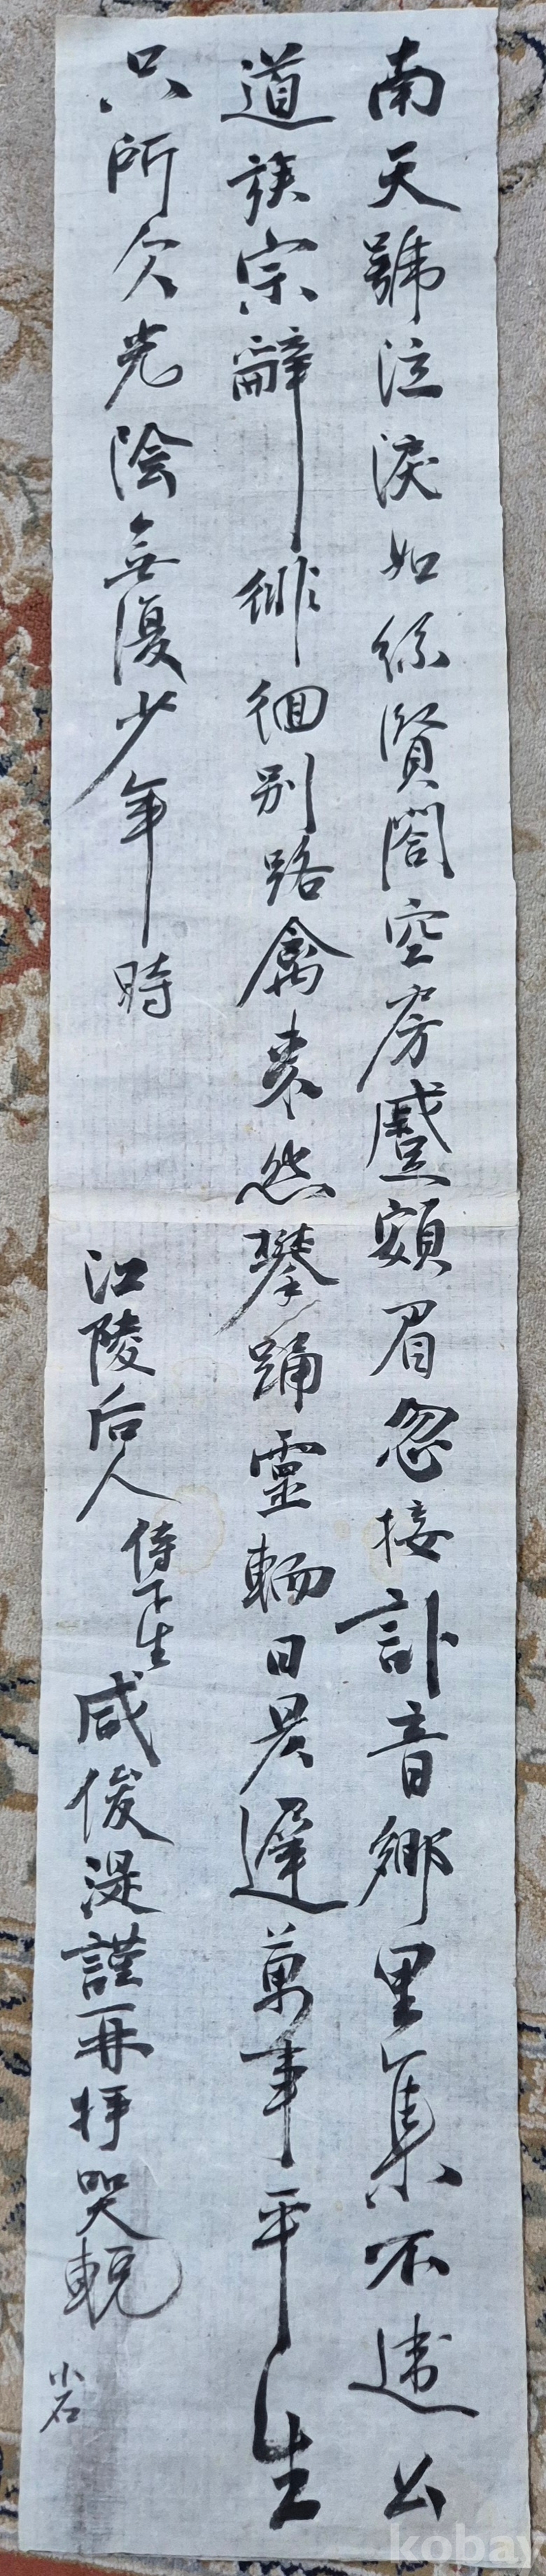 南天號泣淚如絲賢閤空房蹙頞眉忽接訃音鄉里集不違公
道族宗辭徘徊別路禽來怨攀踊靈輀日晷遲萬事平生
只所欠光陰無復少年時
江陵后人 侍下生 咸俊湜謹再拜哭輓
kobay